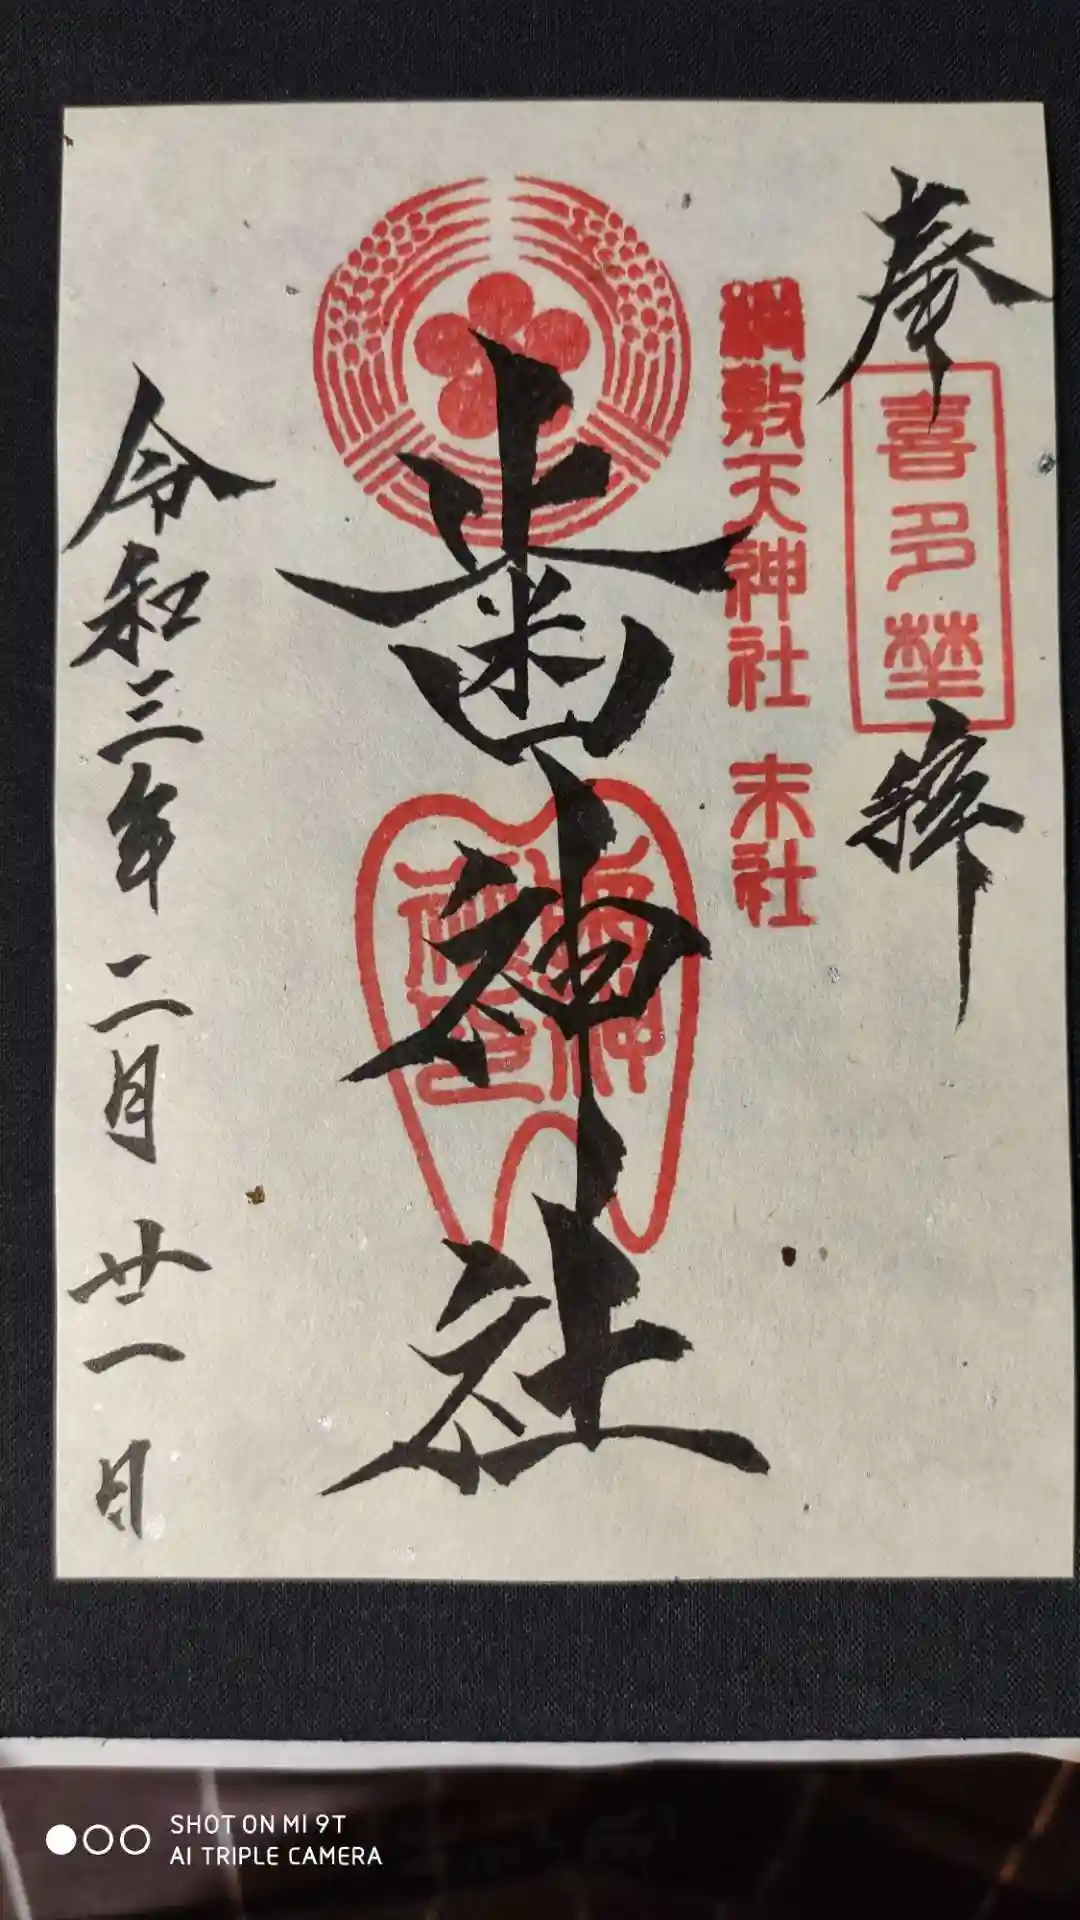 奉拝
喜多埜
綱敷天神社 末社
歯神社
令和三年 二月 廿一日
SHOT ON MI 9T
AI TRIPLE CAMERA